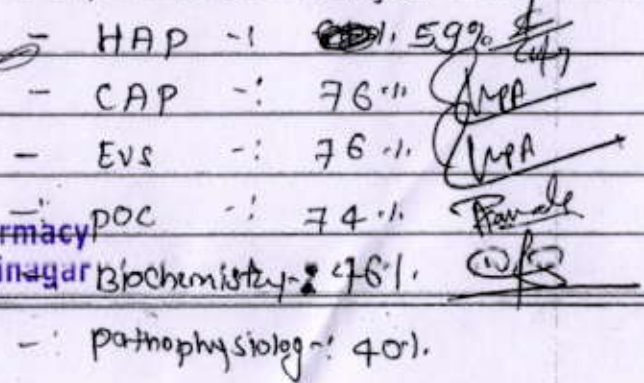 - HAP -: 59%
- CAP -: 76%
- EVS -: 76%
-: POC -: 74%
rmacy
inagar
Biochemistry-: 76%.
-: pathophysiolog-: 40%.